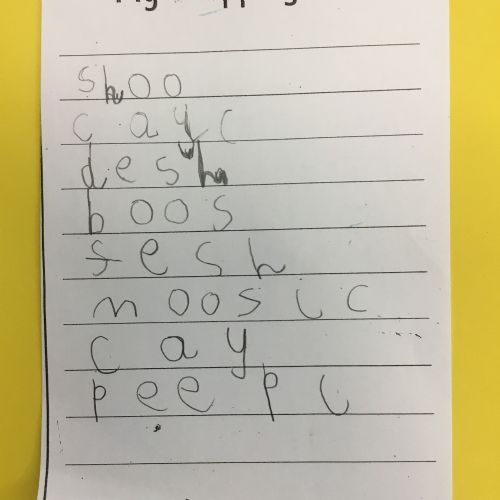 shoo
cayc
desh
boos
fesh
moosic
cay
peepl